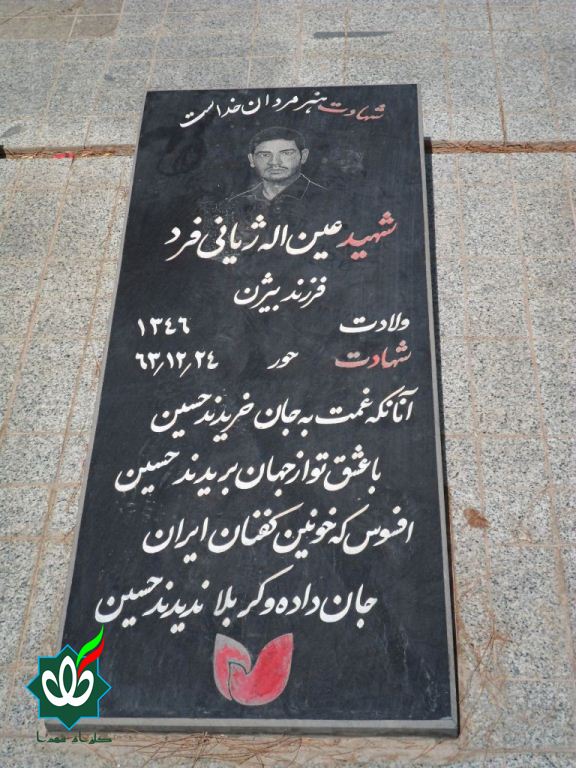 شهادت هنر مردان خداست
شهید عین اله ژیانی فرد
فرزند بیژن
ولادت ۱۳۴۶
شهادت حور ۶۳٫۱۲٫۲۴
آنانکه غمت به جان خریدند حسین
با عشق تو از جهان بریدند حسین
افسوس که خونین کفنان ایران
جان داده و کربلا ندیدند حسین